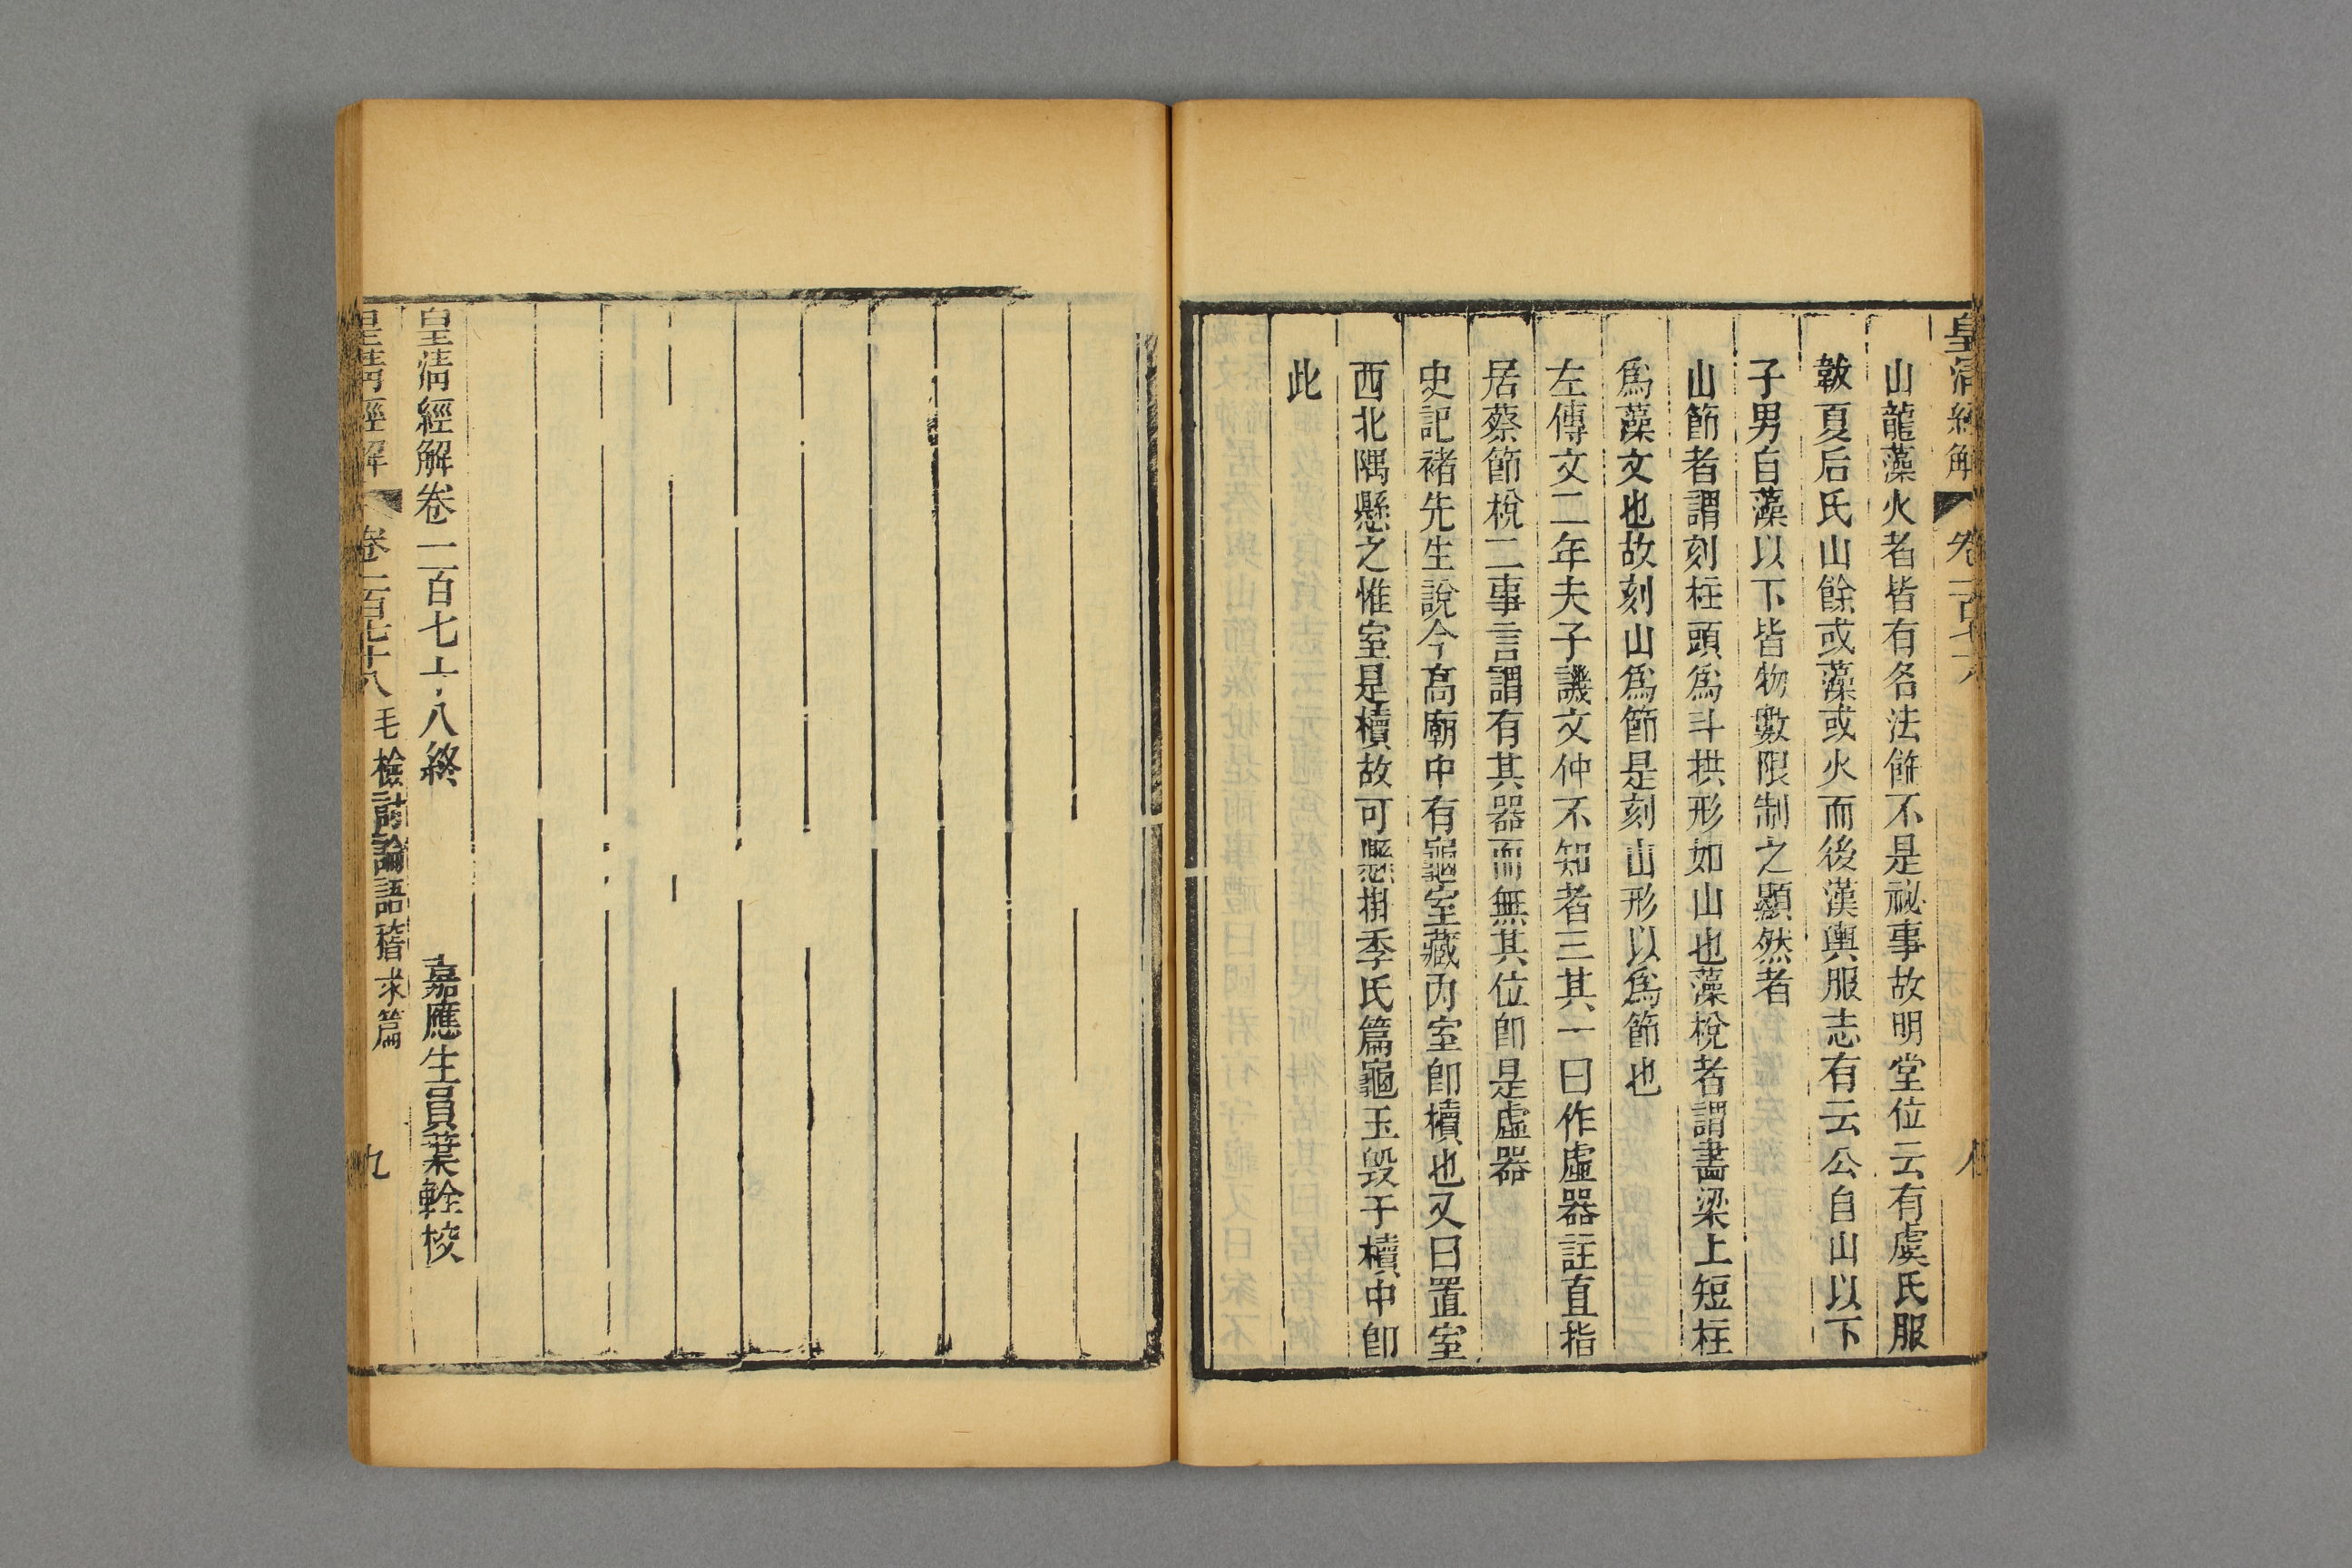 皇清經解
山龍藻火者皆有各法餙不是祕事故明堂位云有虞氏服
韍夏后氏山餘或藻或火而後漢輿服志有云公自山以下
子男自藻以下皆物數限制之顯然者
山節者謂刻柱頭爲斗拱形如山也藻梲者謂畫梁上短柱
爲藻文也故刻山爲節是刻山形以爲節也
左傳文二年夫子譏文仲不知者三其一曰作虛器註直指
居蔡節梲二事言謂有其器而無其位卽是虛器
史記褚先生說今高廟中有龜室藏內室卽櫝也又曰置室
西北隅懸之惟室是櫝故可懸掛季氏篇龜玉毀于櫝中卽
此
皇清經解卷一百七十八終　嘉應生員葉輇校
皇清經解　卷一百七十八　毛檢討論語稽求篇　九